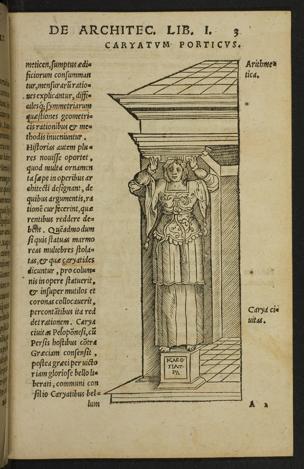 DE ARCHITEC. LIB. I. 3
CARYATVM PORTICVS.
meticen, sumptus ædi-
ficiorum consumman
tur, mensurarū ratio-
nes explicantur, diffi-
cilesq; symmetriarum
quæstiones geometri-
cis rationibus & me-
thodis inueniuntur.
Historias autem plu-
res nouisse oportet,
quod multa ornamen
ta sæpe in operibus ar
chitecti designant, de
quibus argumentis, ra
tionē cur fecerint, quæ
rentibus reddere de-
bēt. Quēadmo dum
si quis statuas marmo
reas muliebres stola-
tas, & quæ caryatides
dicuntur, pro colum-
nis in opere statuerit,
& insuper mutilos et
coronas collocauerit,
percontātibus ita red
det rationem. Carya
ciuitas Peloponēsi, cū
Persis hostibus cōtra
Græciam consensit,
postea græci per victo
riam gloriose bello li-
berati, communi con
silio Caryatibus bel-
lum
Arithme-
tica.
Carya ci-
uitas.
A 2